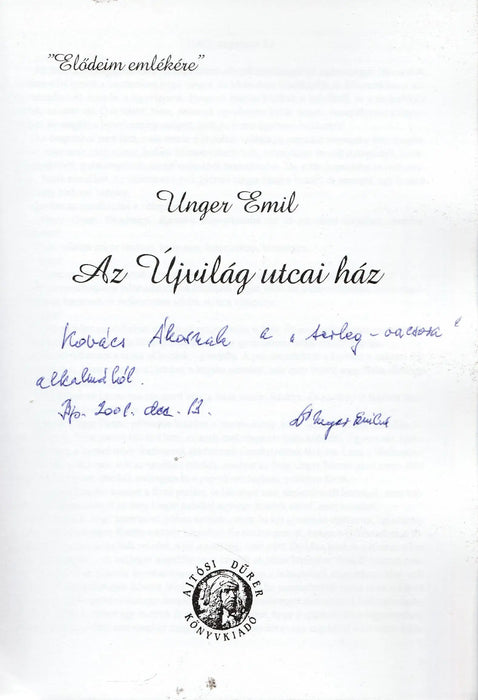 "Elődeim emlékére"
Unger Emil
Az Újvilág utcai ház
Kovács Ákosnak a „serleg-vacsora"
alkalmából.
Bp. 2001. dec. 13.
Dr Unger Emil
AJTÓSI DÜRER
KÖNYVKIADÓ